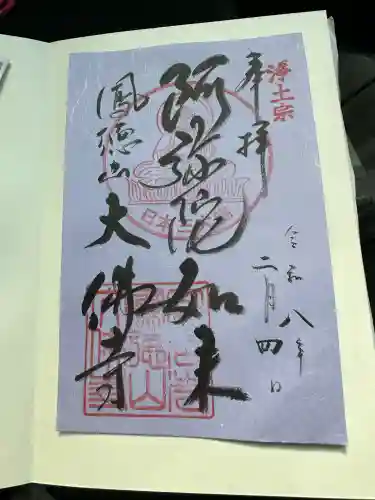 浄土宗
奉拝
阿弥陀如来
鳳徳山大佛寺
令和八年
二月四日
日本三